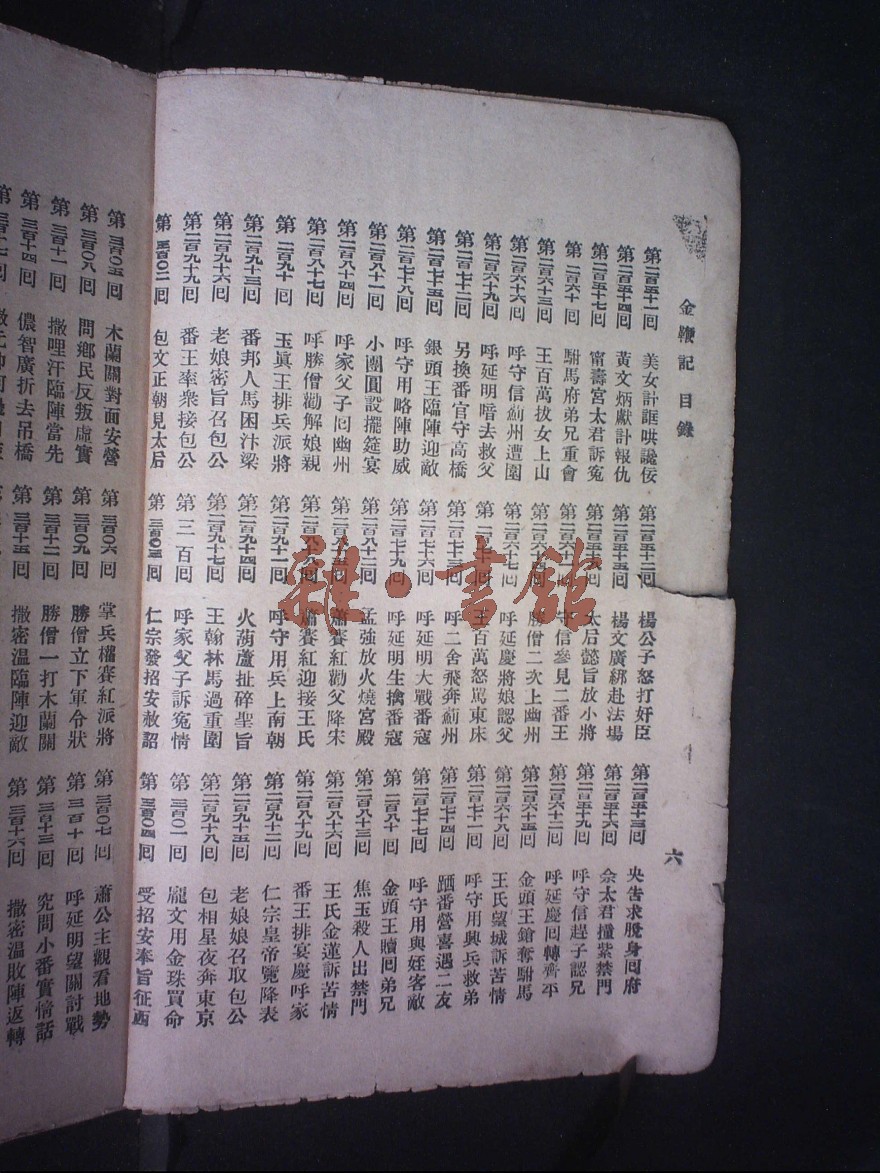 金鞭記 目錄
六
第二百五十一回 美女計誆哄讒佞 第二百五十二回 楊公子怒打奸臣 第二百五十三回 央告求脫身回府
第二百五十四回 黃文炳獻計報仇 第二百五十五回 楊文廣綁赴法場 第二百五十六回 佘太君撞紫禁門
第二百五十七回 甯壽宮太君訴冤 第二百五十八回 太后懿旨放小將 第二百五十九回 呼守信趕子認兄
第二百六十回 駙馬府弟兄重會 第二百六十一回 守信參見二番王 第二百六十二回 呼延慶回轉齊平
第二百六十三回 王百萬拔女上山 第二百六十四回 勝僧二次上幽州 第二百六十五回 金頭王鎗奪駙馬
第二百六十六回 呼守信薊州遭圍 第二百六十七回 呼延慶將娘認父 第二百六十八回 王氏望城訴苦情
第二百六十九回 呼延明喑去救父 第二百七十回 王百萬怒罵東床 第二百七十一回 呼守用興兵救弟
第二百七十二回 另換番官守高橋 第二百七十三回 呼二舍飛奔薊州 第二百七十四回 踹番營喜遇二友
第二百七十五回 銀頭王臨陣迎敵 第二百七十六回 呼延明大戰番寇 第二百七十七回 呼守用與姪客敵
第二百七十八回 呼守用略陣助威 第二百七十九回 呼延明生擒番寇 第二百八十回 金頭王贖回弟兄
第二百八十一回 小團圓設擺筵宴 第二百八十二回 孟強放火燒宮殿 第二百八十三回 焦玉殺人出禁門
第二百八十四回 呼家父子回幽州 第二百八十五回 蕭賽紅勸父降宋 第二百八十六回 王氏金蓮訴苦情
第二百八十七回 呼勝僧勸解娘親 第二百八十八回 蕭賽紅迎接王氏 第二百八十九回 番王排宴慶呼家
第二百九十回 玉眞王排兵派將 第二百九十一回 呼守用兵上南朝 第二百九十二回 仁宗皇帝覽降表
第二百九十三回 番邦人馬困汴梁 第二百九十四回 火葫蘆扯碎聖旨 第二百九十五回 老娘娘召取包公
第二百九十六回 老娘密旨召包公 第二百九十七回 王翰林馬過重圍 第二百九十八回 包相星夜奔東京
第二百九十九回 番王率衆接包公 第三百回 呼家父子訴冤情 第三百〇一回 龐文用金珠買命
第三百〇二回 包文正朝見太后 第三百〇三回 仁宗發招安赦詔 第三百〇四回 受招安奉旨征西
第三百〇五回 木蘭關對面安營 第三百〇六回 掌兵權賽紅派將 第三百〇七回 蕭公主觀看地勢
第三百〇八回 問鄉民反叛虛實 第三百〇九回 勝僧立下軍令狀 第三百十回 呼延明望關討戰
第三百十一回 撒哩汗臨陣當先 第三百十二回 勝僧一打木蘭關 第三百十三回 究問小番實情話
第三百十四回 儂智廣折去吊橋 第三百十五回 撒密溫臨陣迎敵 第三百十六回 撒密溫敗陣返轉
第三百十七回
雜·書館